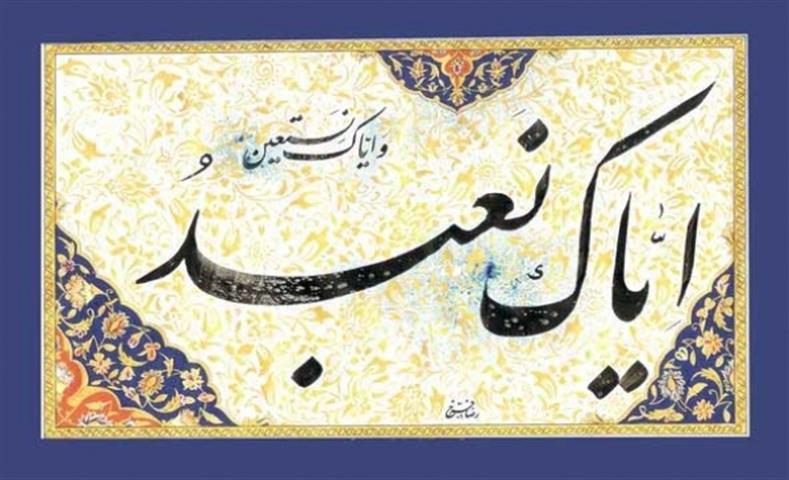 ایّاک نعبدُ
و ایاک نستعین